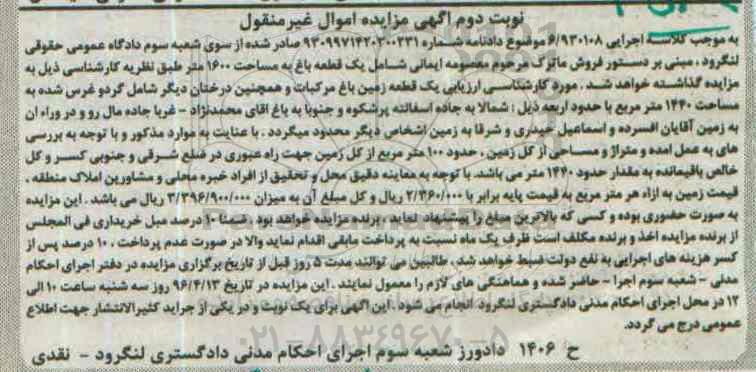 نوبت دوم آگهی مزایده اموال غیرمنقول
به موجب کلاسه اجرایی ۶/۹۳۰۱۰۸ موضوع دادنامه شماره ۹۳۰۹۹۷۱۴۲۰۳۰۰۲۳۱ صادر شده از سوی شعبه سوم دادگاه عمومی حقوقی
لنگرود ، مبنی بر دستور فروش ماترک مرحوم معصومه ایمانی شامل یک قطعه باغ به مساحت ۱۶۰۰ متر طبق نظریه کارشناسی ذیل به
مزایده گذاشته خواهد شد . مورد کارشناسی ارزیابی یک قطعه زمین باغ مرکبات و همچنین درختان دیگر شامل گردو غرس شده به
مساحت ۱۴۴۰ متر مربع با حدود اربعه ذیل : شمالا به جاده اسفالته پرشکوه و جنوبا به باغ اقای محمدنژاد - غربا جاده مال رو و در وراء ان
به زمین آقایان افسرده و اسماعیل حیدری و شرقا به زمین اشخاص دیگر محدود میگردد . با عنایت به موارد مذکور و با توجه به بررسی
های به عمل امده و متراژ و مساحی از کل زمین ، حدود ۱۰۰ متر مربع از کل زمین جهت راه عبوری در ضلع شرقی و جنوبی کسر و کل
خالص باقیمانده به مقدار حدود ۱۴۴۰ متر می باشد. با توجه به معاینه دقیق محل و تحقیق از افراد خبره محلی و مشاورین املاک منطقه ،
قیمت زمین به ازاء هر متر مربع به قیمت پایه برابر با ۲/۳۶۰/۰۰۰ ریال و کل مبلغ آن به میزان ۳/۳۹۶/۹۰۰/۰۰۰ ریال می باشد . این مزایده
به صورت حضوری بوده و کسی که بالاترین مبلغ را پیشنهاد نماید ، برنده مزایده خواهد بود . ضمنا ۱۰ درصد مبل خریداری فی المجلس
از برنده مزایده اخذ و برنده مکلف است ظرف یک ماه نسبت به پرداخت مابقی اقدام نماید والا در صورت عدم پرداخت ، ۱۰ درصد پس از
کسر هزینه های اجرایی به نفع دولت ضبط خواهد شد . طالبین می توانند مدت ۵ روز قبل از تاریخ برگزاری مزایده در دفتر اجرای احکام
مدنی - شعبه سوم اجرا - حاضر شده و هماهنگی های لازم را معمول نمایند . این مزایده در تاریخ ۹۶/۴/۱۳ روز سه شنبه ساعت ۱۰ الی
۱۲ در محل اجرای احکام مدنی دادگستری لنگرود انجام می شود . این اگهی برای یک نوبت و در یکی از جراید کثیرالانتشار جهت اطلاع
عمومی درج می گردد.
۰۲۱-۸۸۳۴۹۶۷۰-۵
ح ۱۴۰۶ دادورز شعبه سوم اجرای احکام مدنی دادگستری لنگرود - نقدی